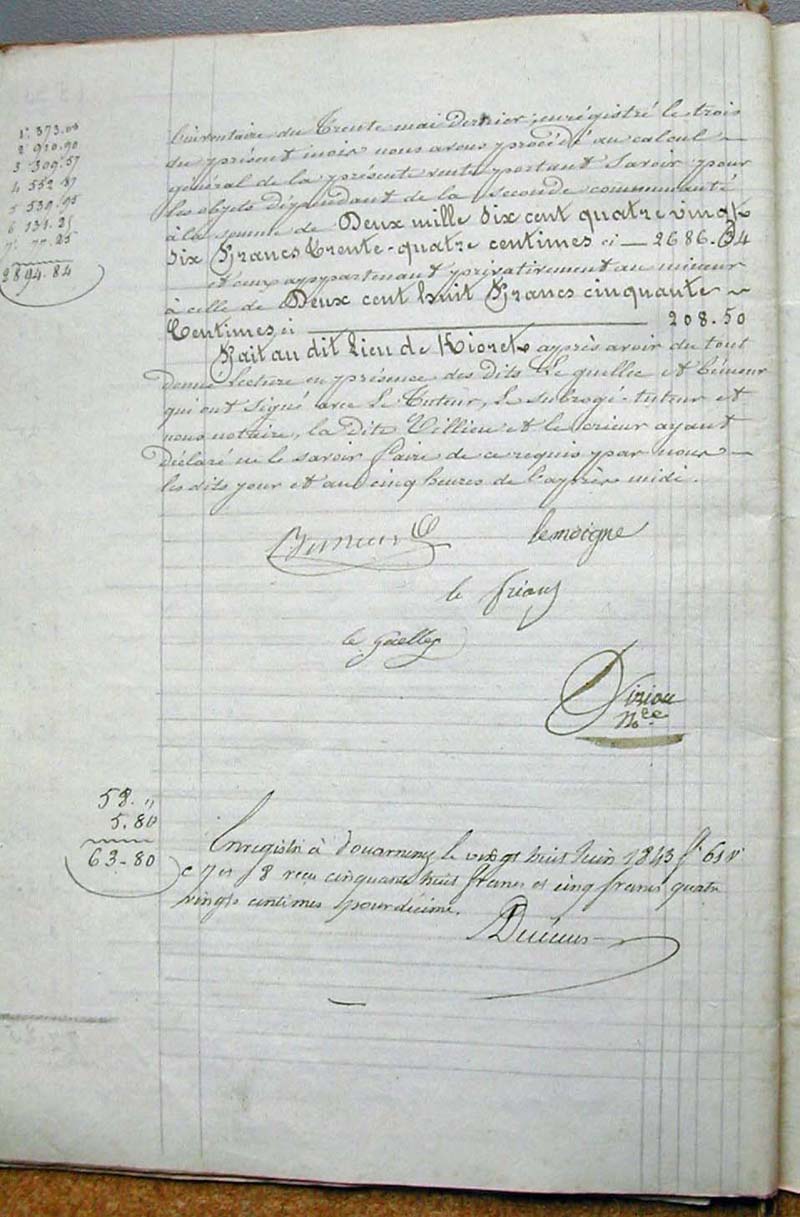 1° 373.00
2 910.90
3 309.57
4 552.87
5 539.95
6 131.25
7° 77.25
2894.84
l'inventaire du Trente mai Dernier, enrégistré le trois
du présent mois nous avons procédé au calcul
général de la présente vente portant Savoir pour
les objets dépendant de la seconde communauté
à la somme de Deux mille Six cent quatre vingt
Six Francs trente-quatre centimes ci — 2686.34
et ceux appartenant privativement au mineur
à celle de Deux cent huit Francs cinquante
Centimes ci — 208.50
Fait au dit Lieu de après avoir du tout
donné Lecture en présence des dits Le guellec et
qui ont signé avec Le Tuteur, Le Subrogé-tuteur et
nous notaire, la Dite et le crieur ayant
Déclaré ne le savoir faire de ce requis par nous
les dits jour et an cinq heures de l'après midi.
lemoigne
le
le guellec
Nre
58. "
5.80
63-80
Enregistré à douarnenez le vingt huit Juin 1843 f° 61 v°
c 7 et 8 reçu cinquante huit francs et cinq francs quatre
vingts centimes pour décime.